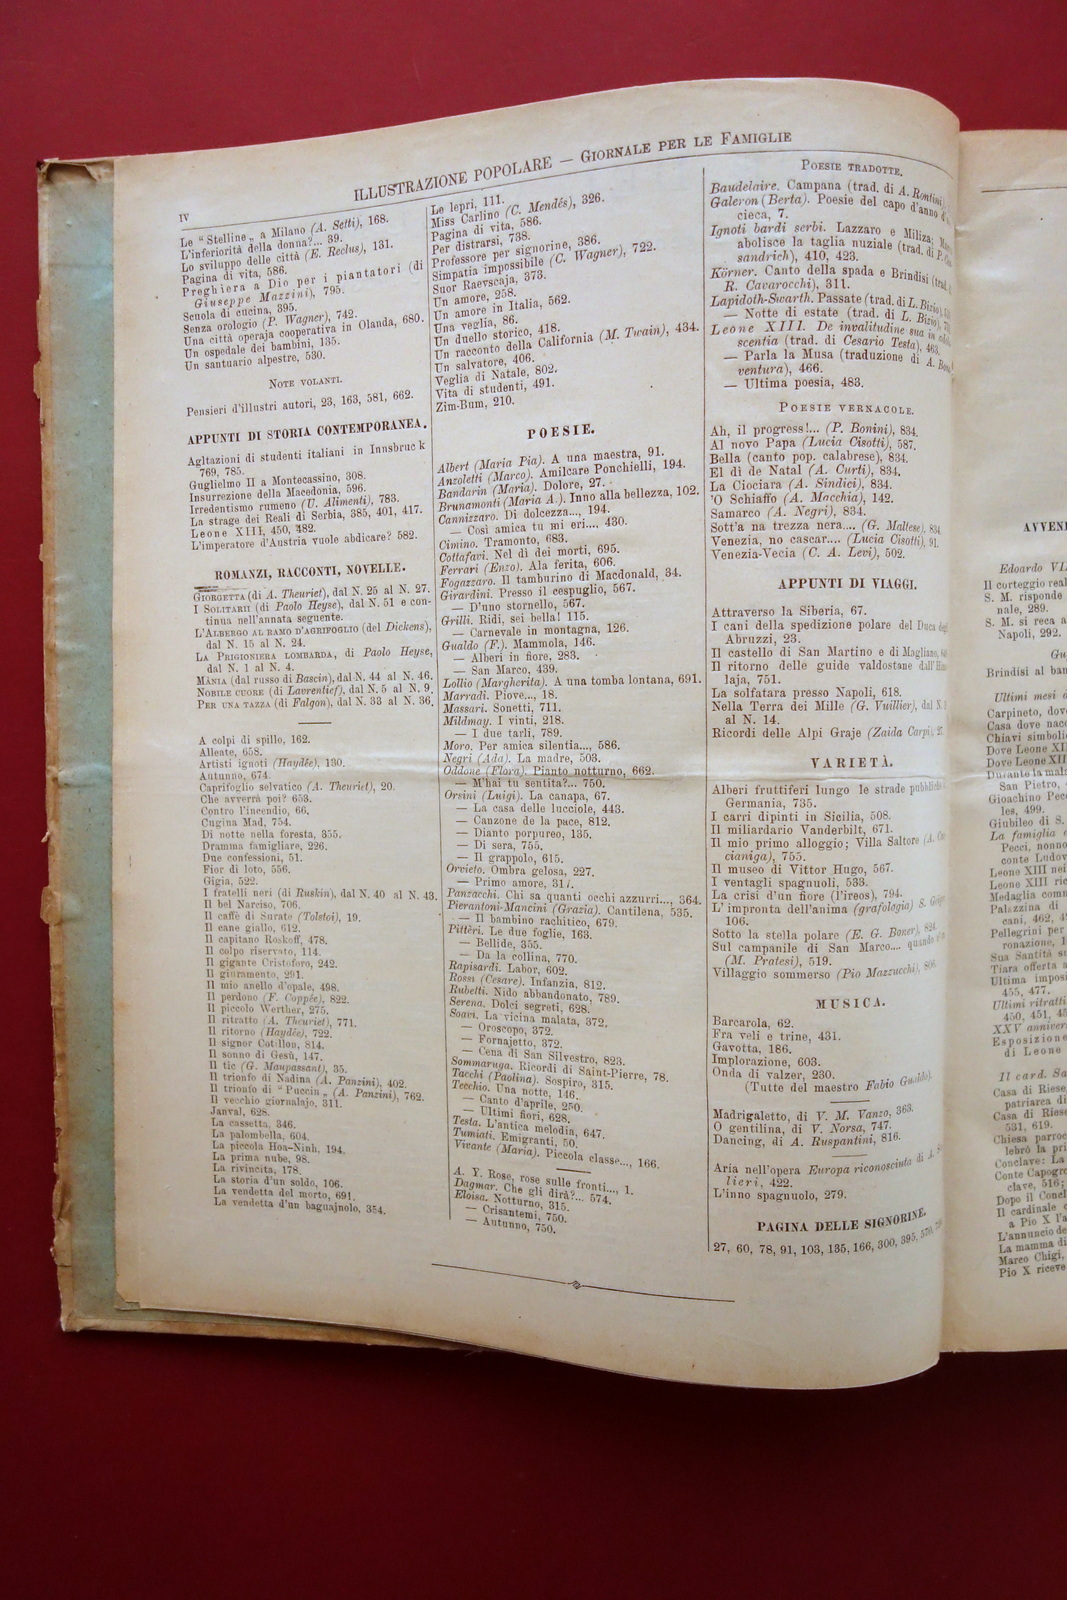 ILLUSTRAZIONE POPOLARE — GIORNALE PER LE FAMIGLIE
IV
Le "Stelline„ a Milano (A. Setti), 168.
L'inferiorità della donna?... 39.
Lo sviluppo delle città (E. Reclus), 131.
Pagina di vita, 586.
Preghiera a Dio per i piantatori (di
Giuseppe Mazzini), 795.
Scuola di cucina, 395.
Senza orologio (P. Wagner), 742.
Una città operaja cooperativa in Olanda, 680.
Un ospedale dei bambini, 135.
Un santuario alpestre, 530.
NOTE VOLANTI.
Pensieri d'illustri autori, 23, 163, 581, 662.
APPUNTI DI STORIA CONTEMPORANEA.
Agitazioni di studenti italiani in Innsbruck
769, 785.
Guglielmo II a Montecassino, 308.
Insurrezione della Macedonia, 596.
Irredentismo rumeno (U. Alimenti), 783.
La strage dei Reali di Serbia, 385, 401, 417.
Leone XIII, 450, 482.
L'imperatore d'Austria vuole abdicare? 582.
ROMANZI, RACCONTI, NOVELLE.
GIORGETTA (di A. Theuriet), dal N. 25 al N. 27.
I SOLITARII (di Paolo Heyse), dal N. 51 e con-
tinua nell'annata seguente.
L'ALBERGO AL RAMO D'AGRIFOGLIO (del Dickens),
dal N. 15 al N. 24.
LA PRIGIONIERA LOMBARDA, di Paolo Heyse,
dal N. 1 al N. 4.
MÀNIA (dal russo di Bascin), dal N. 44 al N. 46.
NOBILE CUORE (di Lavrentief), dal N. 5 al N. 9.
PER UNA TAZZA (di Falgon), dal N. 33 al N. 36.
A colpi di spillo, 162.
Alleate, 658.
Artisti ignoti (Haydée), 130.
Autunno, 674.
Caprifoglio selvatico (A. Theuriet), 20.
Che avverrà poi? 653.
Contro l'incendio, 66.
Cugina Mad, 754.
Di notte nella foresta, 355.
Dramma famigliare, 226.
Due confessioni, 51.
Fior di loto, 556.
Gigia, 522.
I fratelli neri (di Ruskin), dal N. 40 al N. 43.
Il bel Narciso, 706.
Il caffè di Surate (Tolstoi), 19.
Il cane giallo, 612.
Il capitano Roskoff, 478.
Il colpo riservato, 114.
Il gigante Cristoforo, 242.
Il giuramento, 291.
Il mio anello d'opale, 498.
Il perdono (F. Coppée), 822.
Il piccolo Werther, 275.
Il ritratto (A. Theuriet), 771.
Il ritorno (Haydée), 722.
Il signor Cotillon, 814.
Il sonno di Gesù, 147.
Il tic (G. Maupassant), 35.
Il trionfo di Nadina (A. Panzini), 402.
Il trionfo di "Puccin„ (A. Panzini), 762.
Il vecchio giornalajo, 311.
Janval, 628.
La cassetta, 346.
La palombella, 604.
La piccola Hoa-Ninh, 194.
La prima nube, 98.
La rivincita, 178.
La storia d'un soldo, 106.
La vendetta del morto, 691.
La vendetta d'un baguajnolo, 354.
Le lepri, 111.
Miss Carlino (C. Mendés), 326.
Pagina di vita, 586.
Per distrarsi, 738.
Professore per signorine, 386.
Simpatia impossibile (C. Wagner), 722.
Suor Raevscaja, 373.
Un amore, 258.
Un amore in Italia, 562.
Una veglia, 86.
Un duello storico, 418.
Un racconto della California (M. Twain), 434.
Un salvatore, 406.
Veglia di Natale, 802.
Vita di studenti, 491.
Zim-Bum, 210.
POESIE.
Albert (Maria Pia). A una maestra, 91.
Anzoletti (Marco). Amilcare Ponchielli, 194.
Bandarin (Maria). Dolore, 27.
Brunamonti (Maria A.). Inno alla bellezza, 102.
Cannizzaro. Di dolcezza..., 194.
— Così amica tu mi eri..., 430.
Cimino. Tramonto, 683.
Cottafavi. Nel dì dei morti, 695.
Ferrari (Enzo). Ala ferita, 606.
Fogazzaro. Il tamburino di Macdonald, 34.
Girardini. Presso il cespuglio, 567.
— D'uno stornello, 567.
Grilli. Ridi, sei bella! 115.
— Carnevale in montagna, 126.
Gualdo (F.). Mammola, 146.
— Alberi in fiore, 283.
— San Marco, 439.
Lollio (Margherita). A una tomba lontana, 691.
Marradi. Piove..., 18.
Massari. Sonetti, 711.
Mildmay. I vinti, 218.
— I due tarli, 789.
Moro. Per amica silentia..., 586.
Negri (Ada). La madre, 503.
Oddone (Flora). Pianto notturno, 662.
— M'hai tu sentita?... 750.
Orsini (Luigi). La canapa, 67.
— La casa delle lucciole, 443.
— Canzone de la pace, 812.
— Dianto porpureo, 135.
— Di sera, 755.
— Il grappolo, 615.
Orvieto. Ombra gelosa, 227.
— Primo amore, 317.
Panzacchi. Chi sa quanti occhi azzurri..., 364.
Pierantoni-Mancini (Grazia). Cantilena, 535.
— Il bambino rachitico, 679.
Pittèri. Le due foglie, 163.
— Bellide, 355.
— Da la collina, 770.
Rapisardi. Labor, 602.
Rossi (Cesare). Infanzia, 812.
Rubetti. Nido abbandonato, 789.
Serena. Dolci segreti, 628.
Soavi. La vicina malata, 372.
— Oroscopo, 372.
— Fornajetto, 372.
— Cena di San Silvestro, 823.
Sommaruga. Ricordi di Saint-Pierre, 78.
Tacchi (Paolina). Sospiro, 315.
Tecchio. Una notte, 146.
— Canto d'aprile, 250.
— Ultimi fiori, 628.
Testa. L'antica melodia, 647.
Tumiati. Emigranti, 50.
Vivante (Maria). Piccola classe..., 166.
A. Y. Rose, rose sulle fronti..., 1.
Dagmar. Che gli dirà?... 574.
Eloisa. Notturno, 315.
— Crisantemi, 750.
— Autunno, 750.
POESIE TRADOTTE.
Baudelaire. Campana (trad. di A. Rontini),
Galeron (Berta). Poesie del capo d'anno
cieca, 7.
Ignoti bardi serbi. Lazzaro e Miliza;
abolisce la taglia nuziale (trad. di
sandrich), 410, 423.
Körner. Canto della spada e Brindisi (trad.
R. Cavarocchi), 311.
Lapidoth-Swarth. Passate (trad. di L. Bizio),
— Notte di estate (trad. di L. Bizio),
Leone XIII. De invalitudine sua in
scentia (trad. di Cesario Testa), 463.
— Parla la Musa (traduzione di A.
ventura), 466.
— Ultima poesia, 483.
POESIE VERNACOLE.
Ah, il progress!... (P. Bonini), 834.
Al novo Papa (Lucia Cisotti), 587.
Bella (canto pop. calabrese), 834.
El dì de Natal (A. Curti), 834.
La Ciociara (A. Sindici), 834.
'O Schiaffo (A. Macchia), 142.
Samarco (A. Negri), 834.
Sott'a na trezza nera.... (G. Maltese), 834
Venezia, no cascar.... (Lucia Cisotti), 91.
Venezia-Vecia (C. A. Levi), 502.
APPUNTI DI VIAGGI.
Attraverso la Siberia, 67.
I cani della spedizione polare del Duca degli
Abruzzi, 23.
Il castello di San Martino e di Magliano,
Il ritorno delle guide valdostane dall'
laja, 751.
La solfatara presso Napoli, 618.
Nella Terra dei Mille (G. Vuillier), dal N.
al N. 14.
Ricordi delle Alpi Graje (Zaida Carpi),
VARIETÀ.
Alberi fruttiferi lungo le strade pubbliche
Germania, 735.
I carri dipinti in Sicilia, 508.
Il miliardario Vanderbilt, 671.
Il mio primo alloggio; Villa Saltore (A.
cianiga), 755.
Il museo di Vittor Hugo, 567.
I ventagli spagnuoli, 533.
La crisi d'un fiore (l'ireos), 794.
L'impronta dell'anima (grafologia) S.
106.
Sotto la stella polare (E. G. Boner), 824.
Sul campanile di San Marco.... quando
(M. Pratesi), 519.
Villaggio sommerso (Pio Mazzucchi), 806.
MUSICA.
Barcarola, 62.
Fra veli e trine, 431.
Gavotta, 186.
Implorazione, 603.
Onda di valzer, 230.
(Tutte del maestro Fabio Gualdo).
Madrigaletto, di V. M. Vanzo, 363.
O gentilina, di V. Norsa, 747.
Dancing, di A. Ruspantini, 816.
Aria nell'opera Europa riconosciuta di A.
lieri, 422.
L'inno spagnuolo, 279.
PAGINA DELLE SIGNORINE.
27, 60, 78, 91, 103, 135, 166, 300, 395, 570,
AVVENI
Edoardo VI
Il corteggio real
S. M. risponde
nale, 289.
S. M. si reca a
Napoli, 292.
Gu
Brindisi al ban
Ultimi mesi d
Carpineto, dov
Casa dove nac
Chiavi simboli
Dove Leone XI
Dove Leone XII
Durante la mala
San Pietro,
Gioachino Pec
les, 499.
Giubileo di S.
La famiglia
Pecci, nonno
conte Ludov
Leone XIII nel
Leone XIII ric
Medaglia com
Palazzina di
cani, 462,
Pellegrini per
ronazione,
Sua Santità su
Tiara offerta a
Ultima impos
455, 477.
Ultimi ritratti
450, 451, 45
XXV anniver
Esposizione
di Leone
Il card. Sa
Casa di Riese
patriarca di
Casa di Riese
531, 619.
Chiesa parroc
lebrò la pri
Conclave: La
Conte Capogr
clave, 516;
Dopo il Concl
Il cardinale
a Pio X l'a
L'annuncio de
La mamma di
Marco Chigi,
Pio X riceve